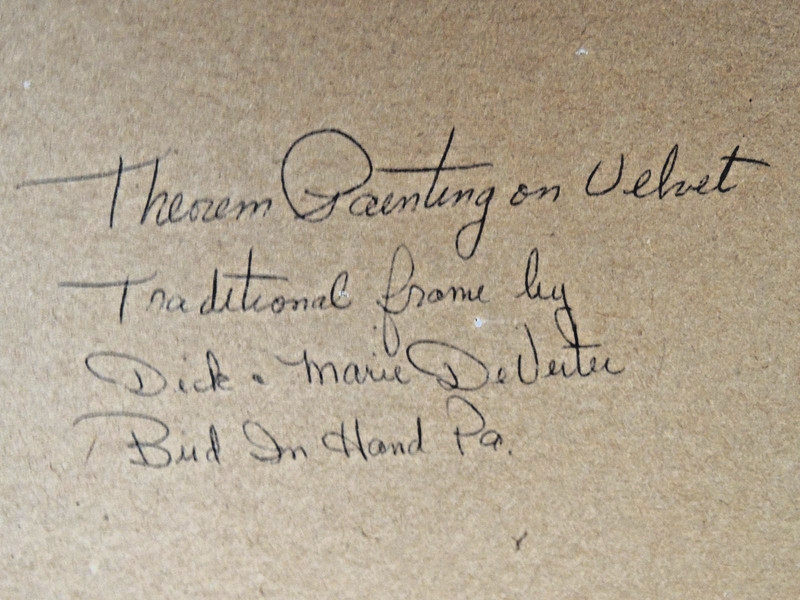 Theorem Painting on Velvet
Traditional frame by
Dick & Marie DeVerter
Bird In Hand Pa.